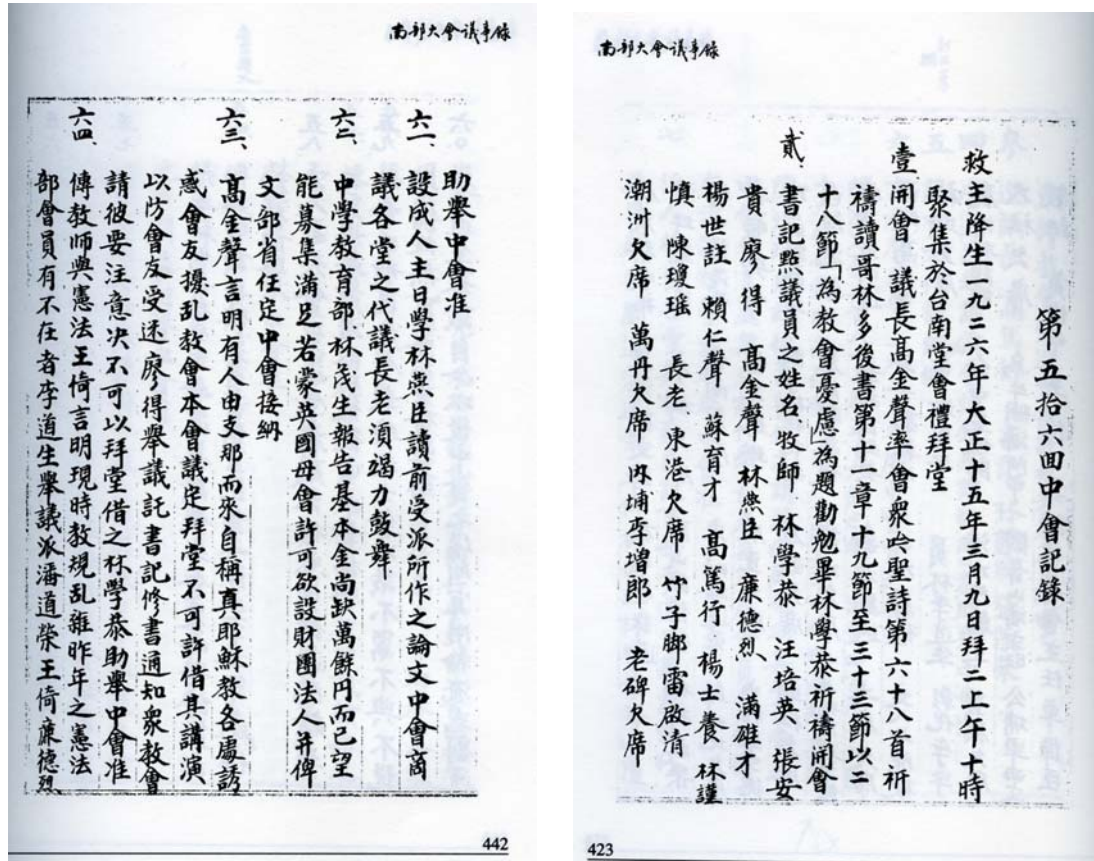 南部大會议事錄
第五拾六回中會記錄
救主降生一九二六年大正十五年三月九日拜二上午十時
聚集於台南堂會禮拜堂
壹 開會 議長高金聲率會衆吟聖詩第六十八首祈
禱讀哥林多後書第十一章十九節至三十三節以二
十八節「為教會憂慮」為題勸勉畢林學恭祈禱開會
貳、書記點議員之姓名牧師 林學恭 汪培英 張安
貴 廖得 高金聲 林燕臣 廉德烈、 滿雄才
楊世註 賴仁聲 蘇育才 高篤行 楊士養 林謹
慎 陳瓊瑤 長老 東港欠席 竹子脚雷啟清
潮州欠席 萬丹欠席 内埔李增郎 老碑欠席
423
南部大會议事錄
助舉中會准
六一、設成人主日學林燕臣讀前受派所作之論文中會商
議各堂之代議長老須竭力鼓舞
六二、中學教育部林茂生報告基本金尚缺萬餘円而已望
能募集滿足若蒙英國母會許可欲設財團法人并俾
文部省任定中會接納
六三、高金聲言明有人由支那而來自稱真耶穌教各處誘
惑會友擾乱教會本會議定拜堂不可許借其講演
以防會友受迷廖得舉議託書記修書通知衆教會
請彼要注意决不可以拜堂借之林學恭助舉中會准
六四、傳教師與憲法王倚言明現時教規乱雜昨年之憲法
部會員有不在者李道生舉議派潘道榮王倚廉德烈、
442